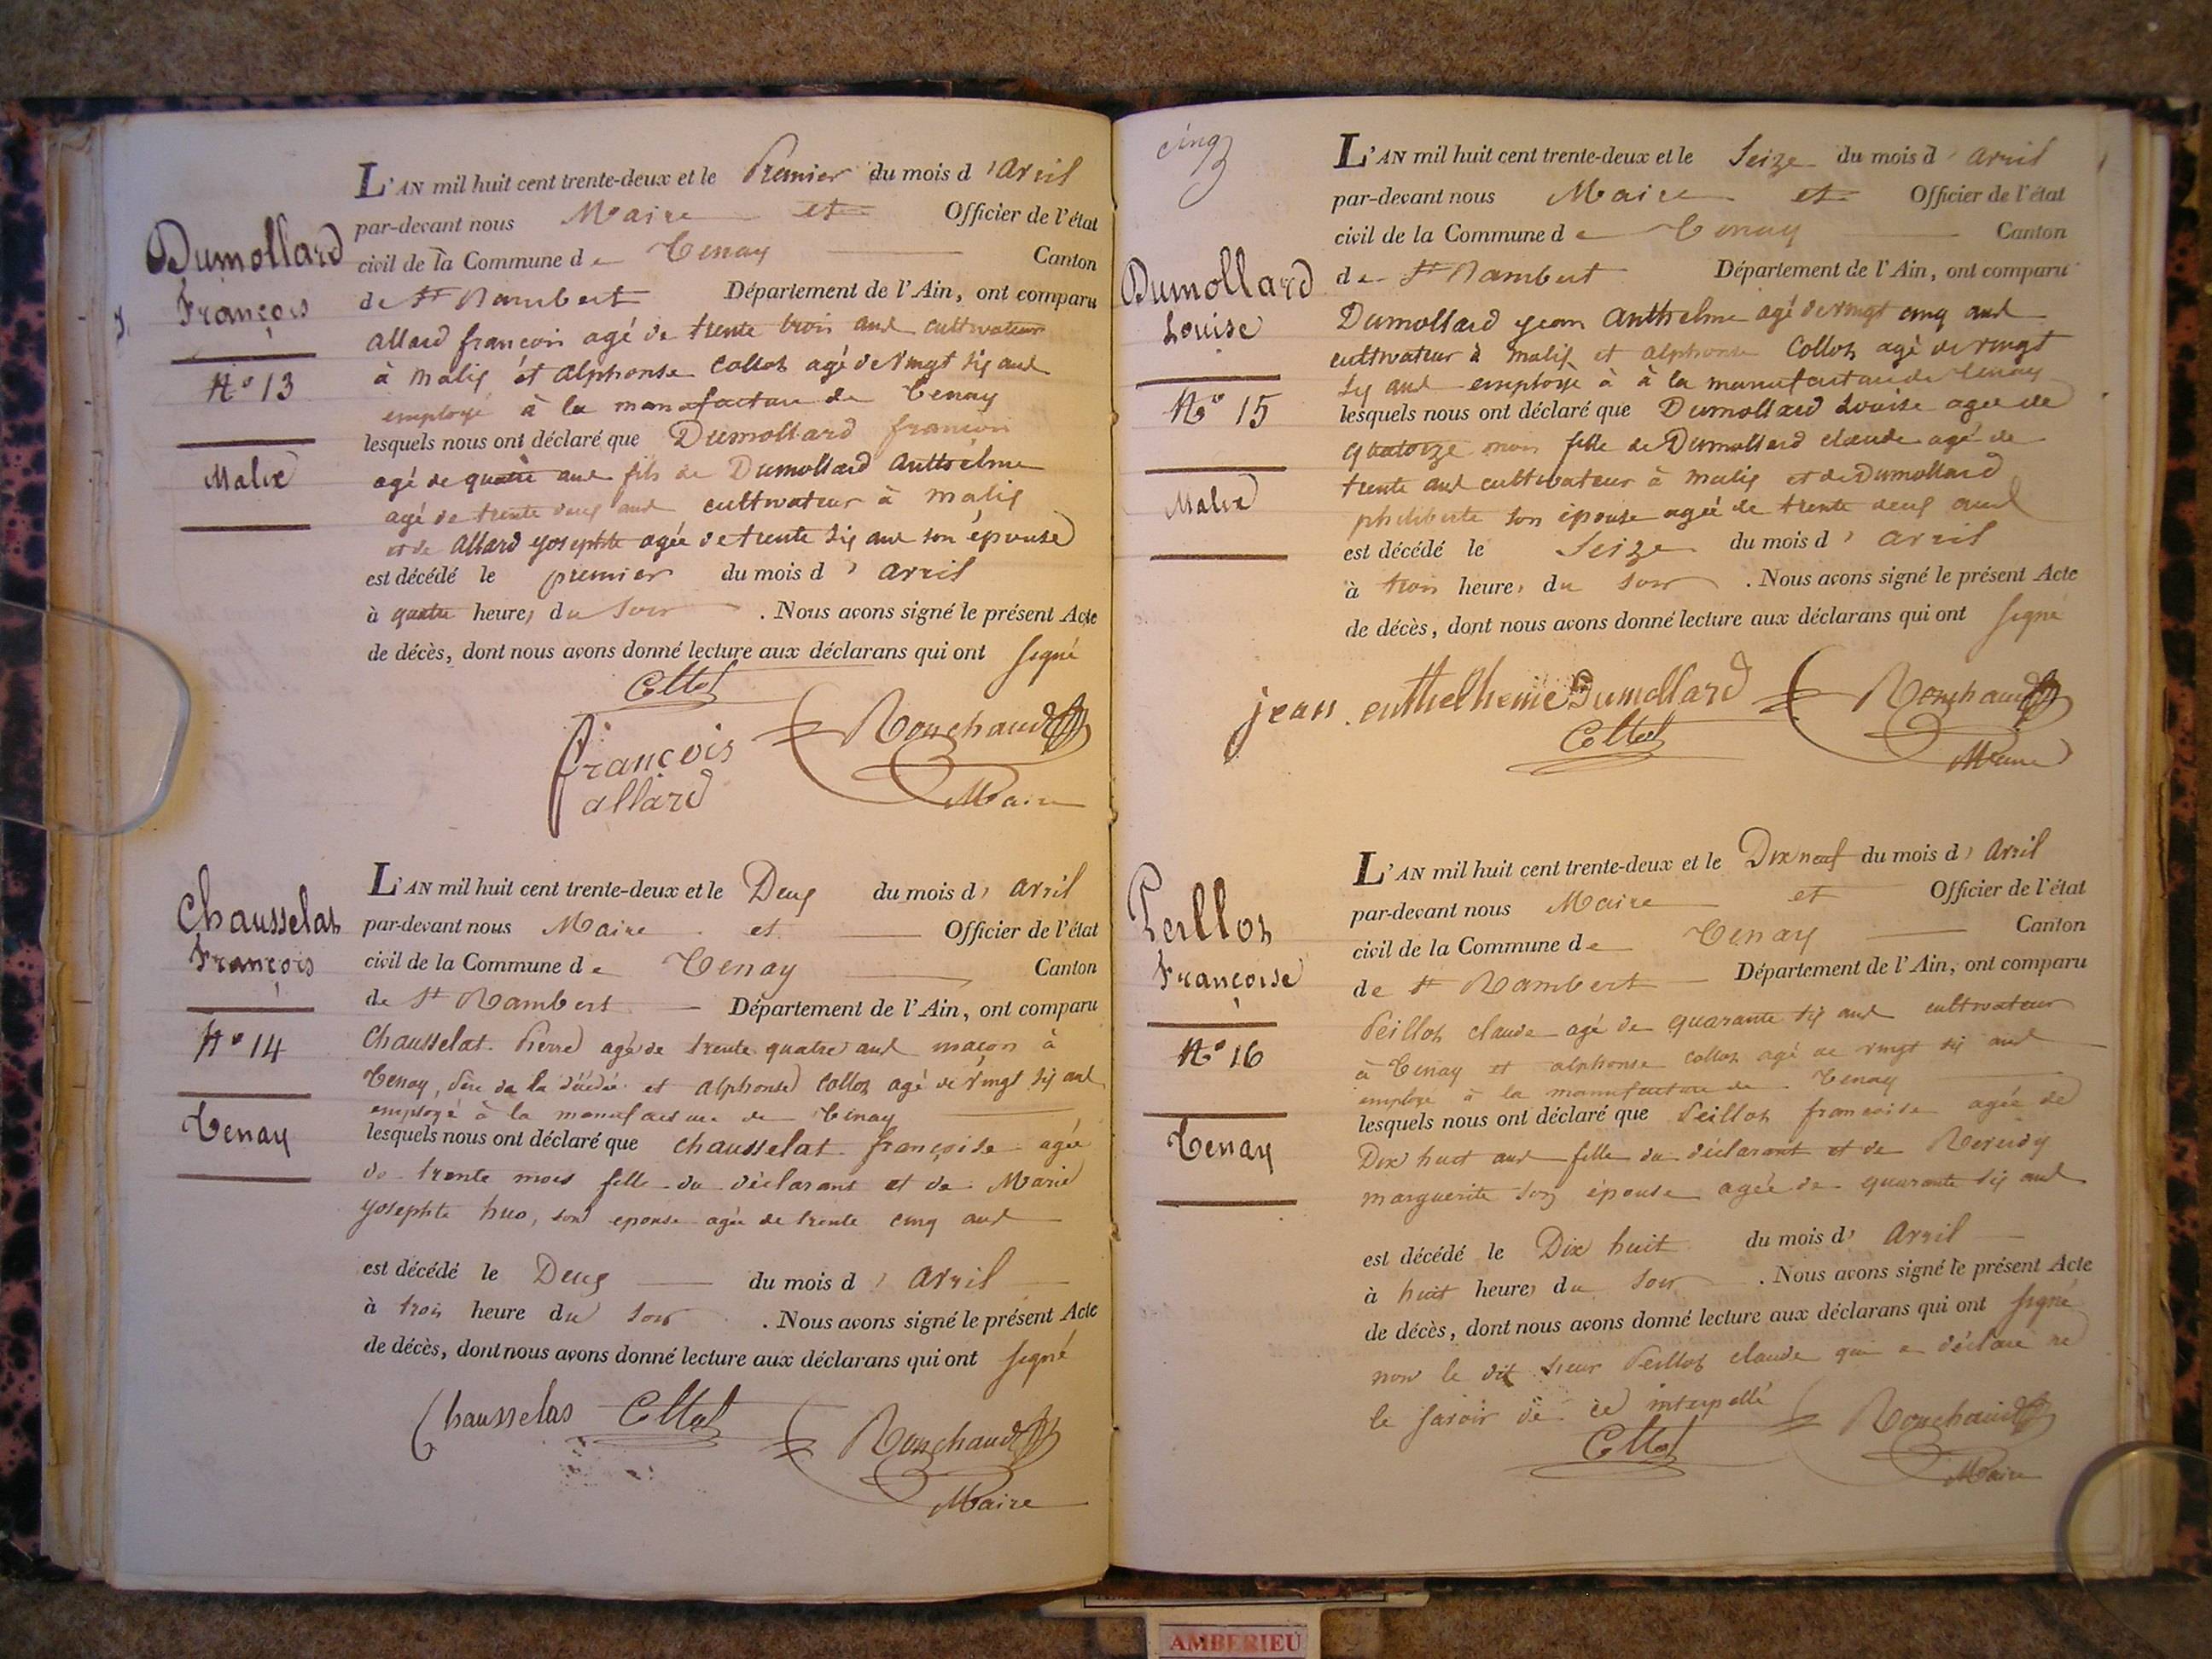 Dumollard
François
N° 13
Malix
L'AN mil huit cent trente-deux et le Premier du mois d'Avril
par-devant nous Maire et Officier de l'état
civil de la Commune de Tenay Canton
de St Rambert Département de l'Ain, ont comparu
allard françois agé de trente trois ans cultivateur
à malix et alphonse Collot agé de vingt six ans
employé à la manufacture de Tenay
lesquels nous ont déclaré que Dumollard françois
agé de quatre ans fils de Dumollard Anthelme
agé de trente deux ans cultivateur à malix
et de allard Josephte agée de trente six ans son épouse
est décédé le premier du mois d'avril
à quatre heures du soir. Nous avons signé le présent Acte
de décès, dont nous avons donné lecture aux déclarans qui ont signé
Collot
françois
allard
Rouchaud
Maire
Chausselat
François
N° 14
Tenay
L'AN mil huit cent trente-deux et le Deux du mois d'avril
par-devant nous Maire et Officier de l'état
civil de la Commune de Tenay Canton
de St Rambert Département de l'Ain, ont comparu
Chausselat Pierre agé de trente quatre ans maçon à
Tenay, père de la et alphonse Collot agé de vingt six ans
employé à la manufacture de Tenay
lesquels nous ont déclaré que chausselat françoise agée
de trente mois fille du déclarant et de Marie
Josephte huo, son epouse agée de trente cinq ans
est décédé le Deux du mois d'avril
à trois heure du soir. Nous avons signé le présent Acte
de décès, dont nous avons donné lecture aux déclarans qui ont signé
Chausselas Collot Rouchaud
Maire
cinq
Dumollard
Louise
N° 15
Malix
L'AN mil huit cent trente-deux et le Seize du mois d'avril
par-devant nous Maire et Officier de l'état
civil de la Commune de Tenay Canton
de St Rambert Département de l'Ain, ont comparu
Dumollard jean Anthelme agé de vingt cinq ans
cultivateur à malix et alphonse Collot agé de vingt
six ans employé à à la manufacture de Tenay
lesquels nous ont déclaré que Dumollard Louise agée de
quatorze mois fille de Dumollard claude agé de
trente ans cultivateur à malix et de Dumollard
philiberte son épouse agée de trente deux ans
est décédé le Seize du mois d'avril
à trois heures du soir. Nous avons signé le présent Acte
de décès, dont nous avons donné lecture aux déclarans qui ont signé
jean enthelheme Dumollard Rouchaud
Collot
Maire
Peillot
Françoise
N° 16
Tenay
L'AN mil huit cent trente-deux et le Dix neuf du mois d'avril
par-devant nous Maire et Officier de l'état
civil de la Commune de Tenay Canton
de St Rambert Département de l'Ain, ont comparu
Peillot claude agé de quarante six ans cultivateur
à Tenay et alphonse collot agé de vingt six ans
employe à la manufacture de Tenay
lesquels nous ont déclaré que Peillot françoise agée de
Dix huit ans fille du déclarant et de
marguerite son épouse agée de quarante six ans
est décédé le Dix huit du mois d'avril
à huit heures du soir. Nous avons signé le présent Acte
de décès, dont nous avons donné lecture aux déclarans qui ont signé
non le dit sieur Peillot claude qui a déclaré ne
le savoir de ce interpellé
Collot Rouchaud
Maire
AMBERIEU